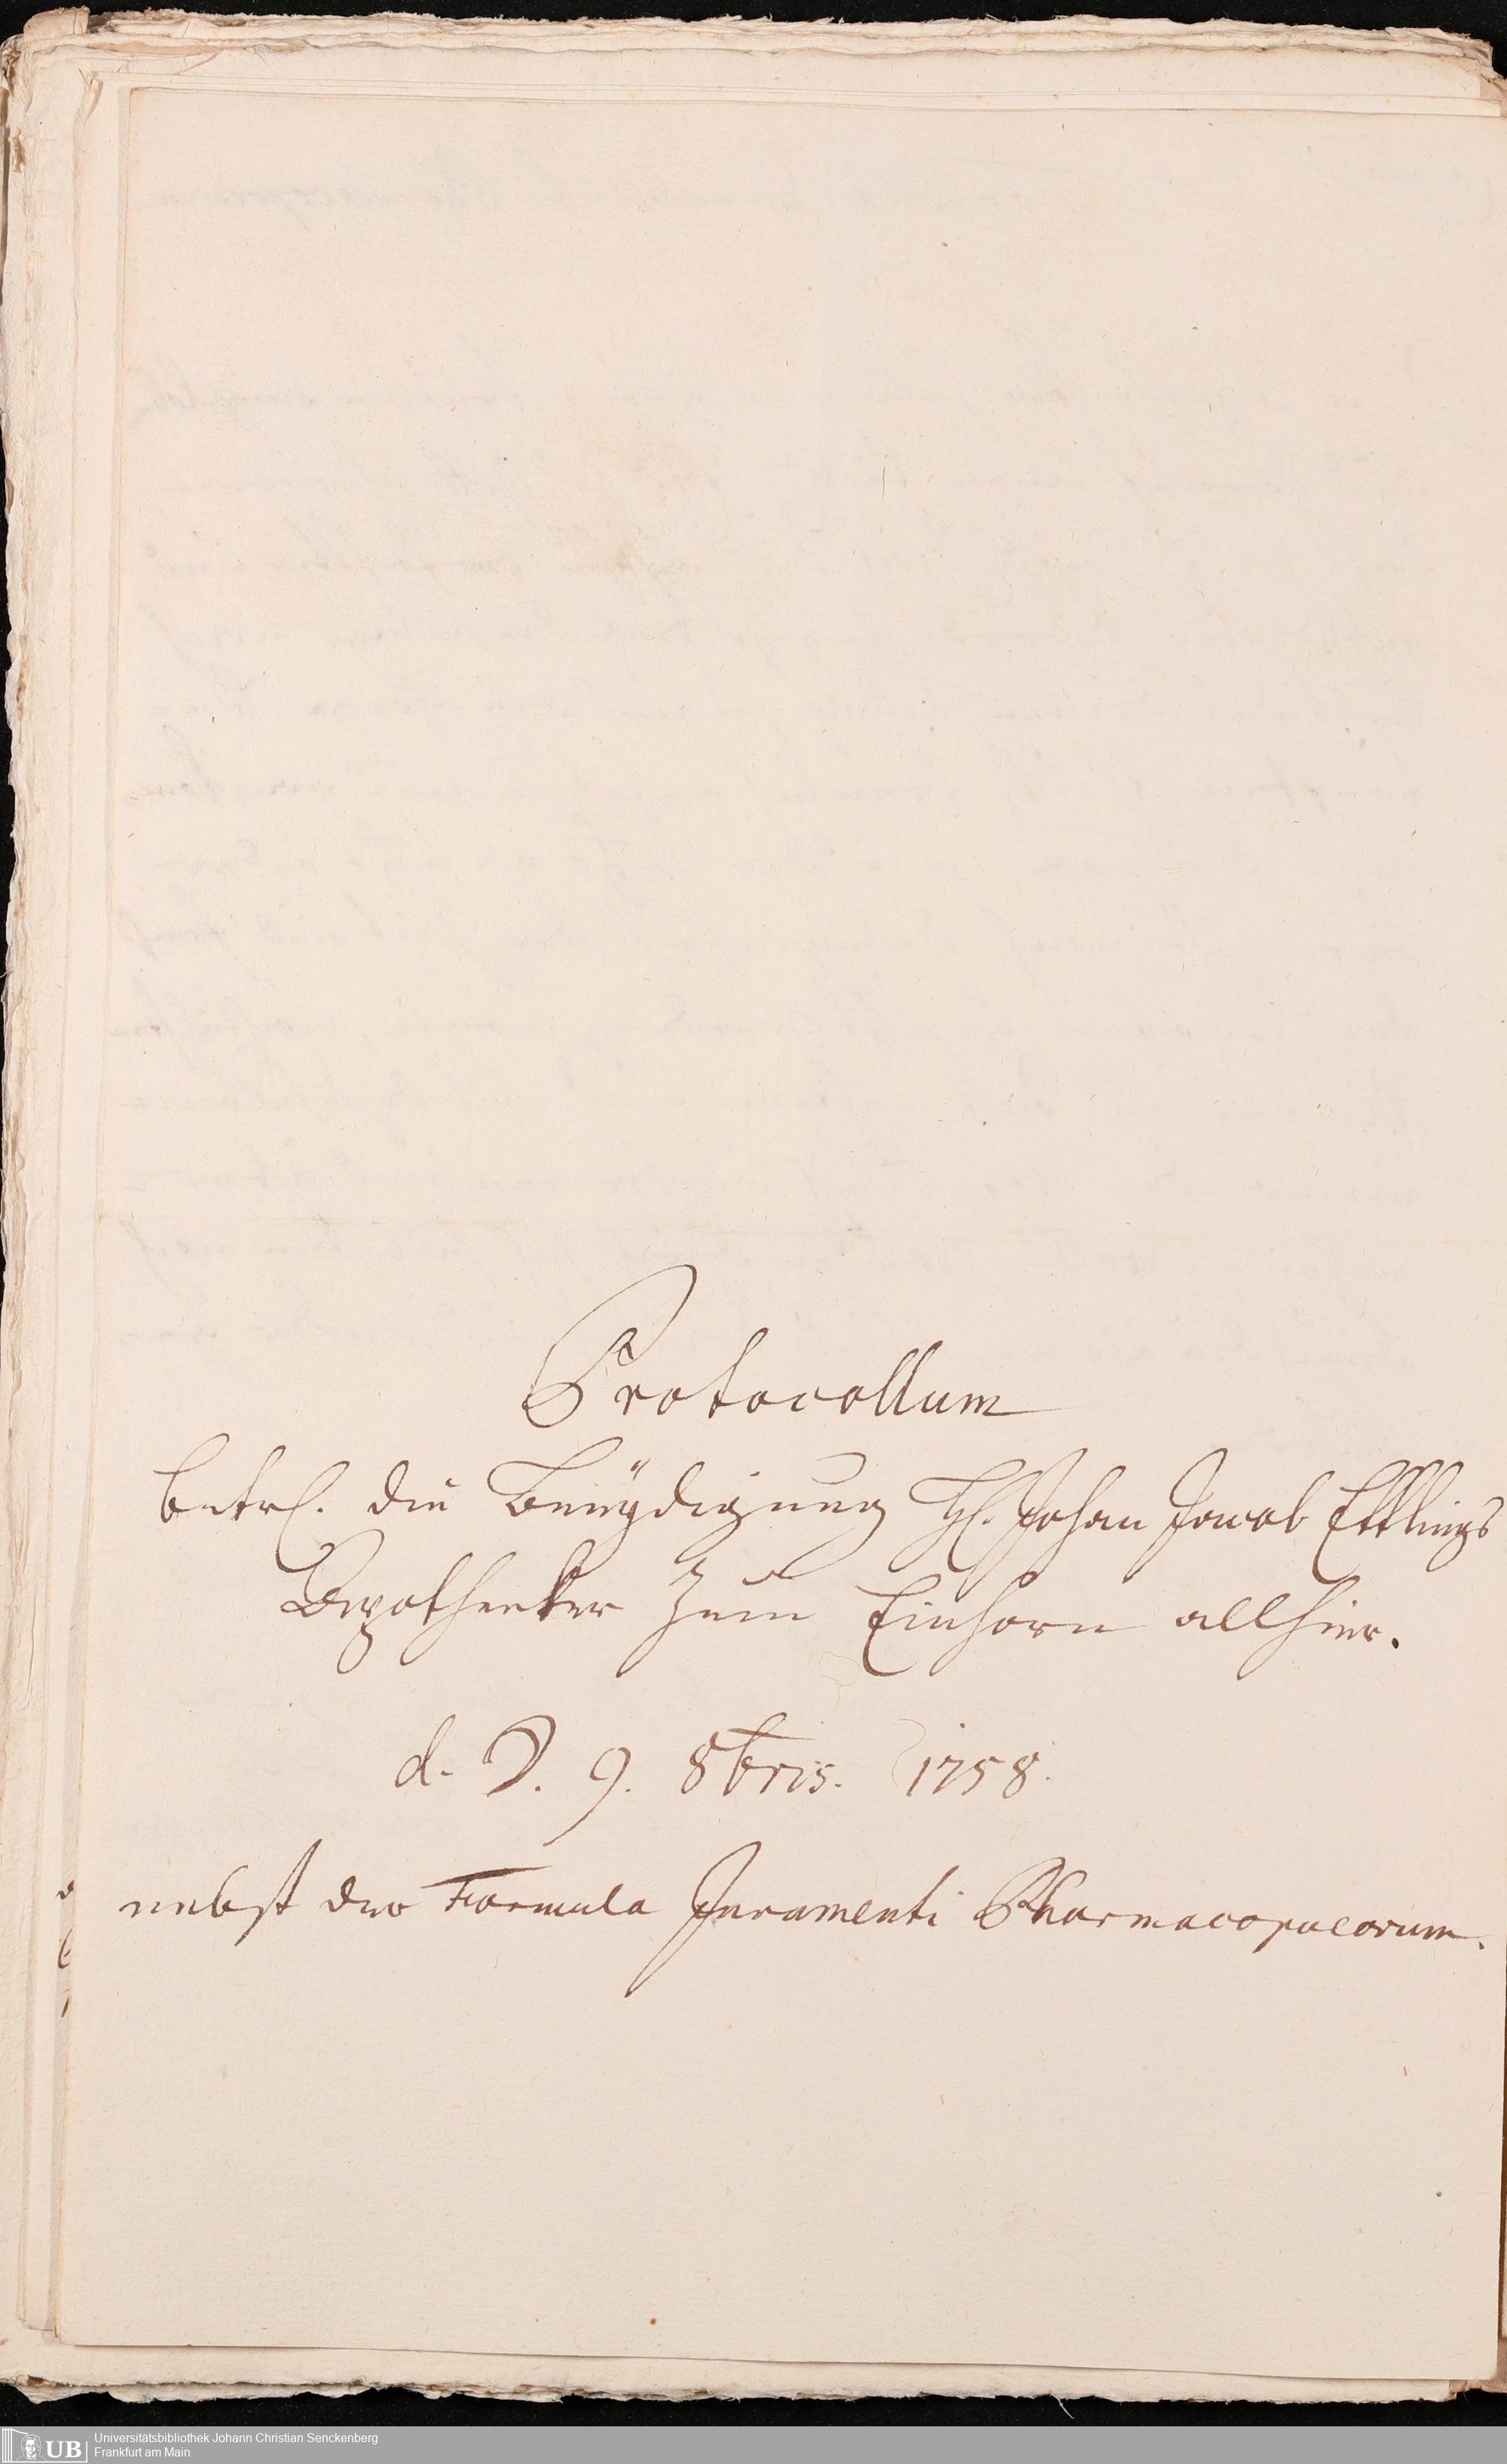 Protocollum
betrf. die Beeÿdigung H. Johan Jacob Ettlings
Apothecker zum Einhorn allhier.
d. D. 9. 8bris. 1758.
nebst der Formula Juramenti Pharmacopaeorum.
UB Universitätsbibliothek Johann Christian Senckenberg
Frankfurt am Main